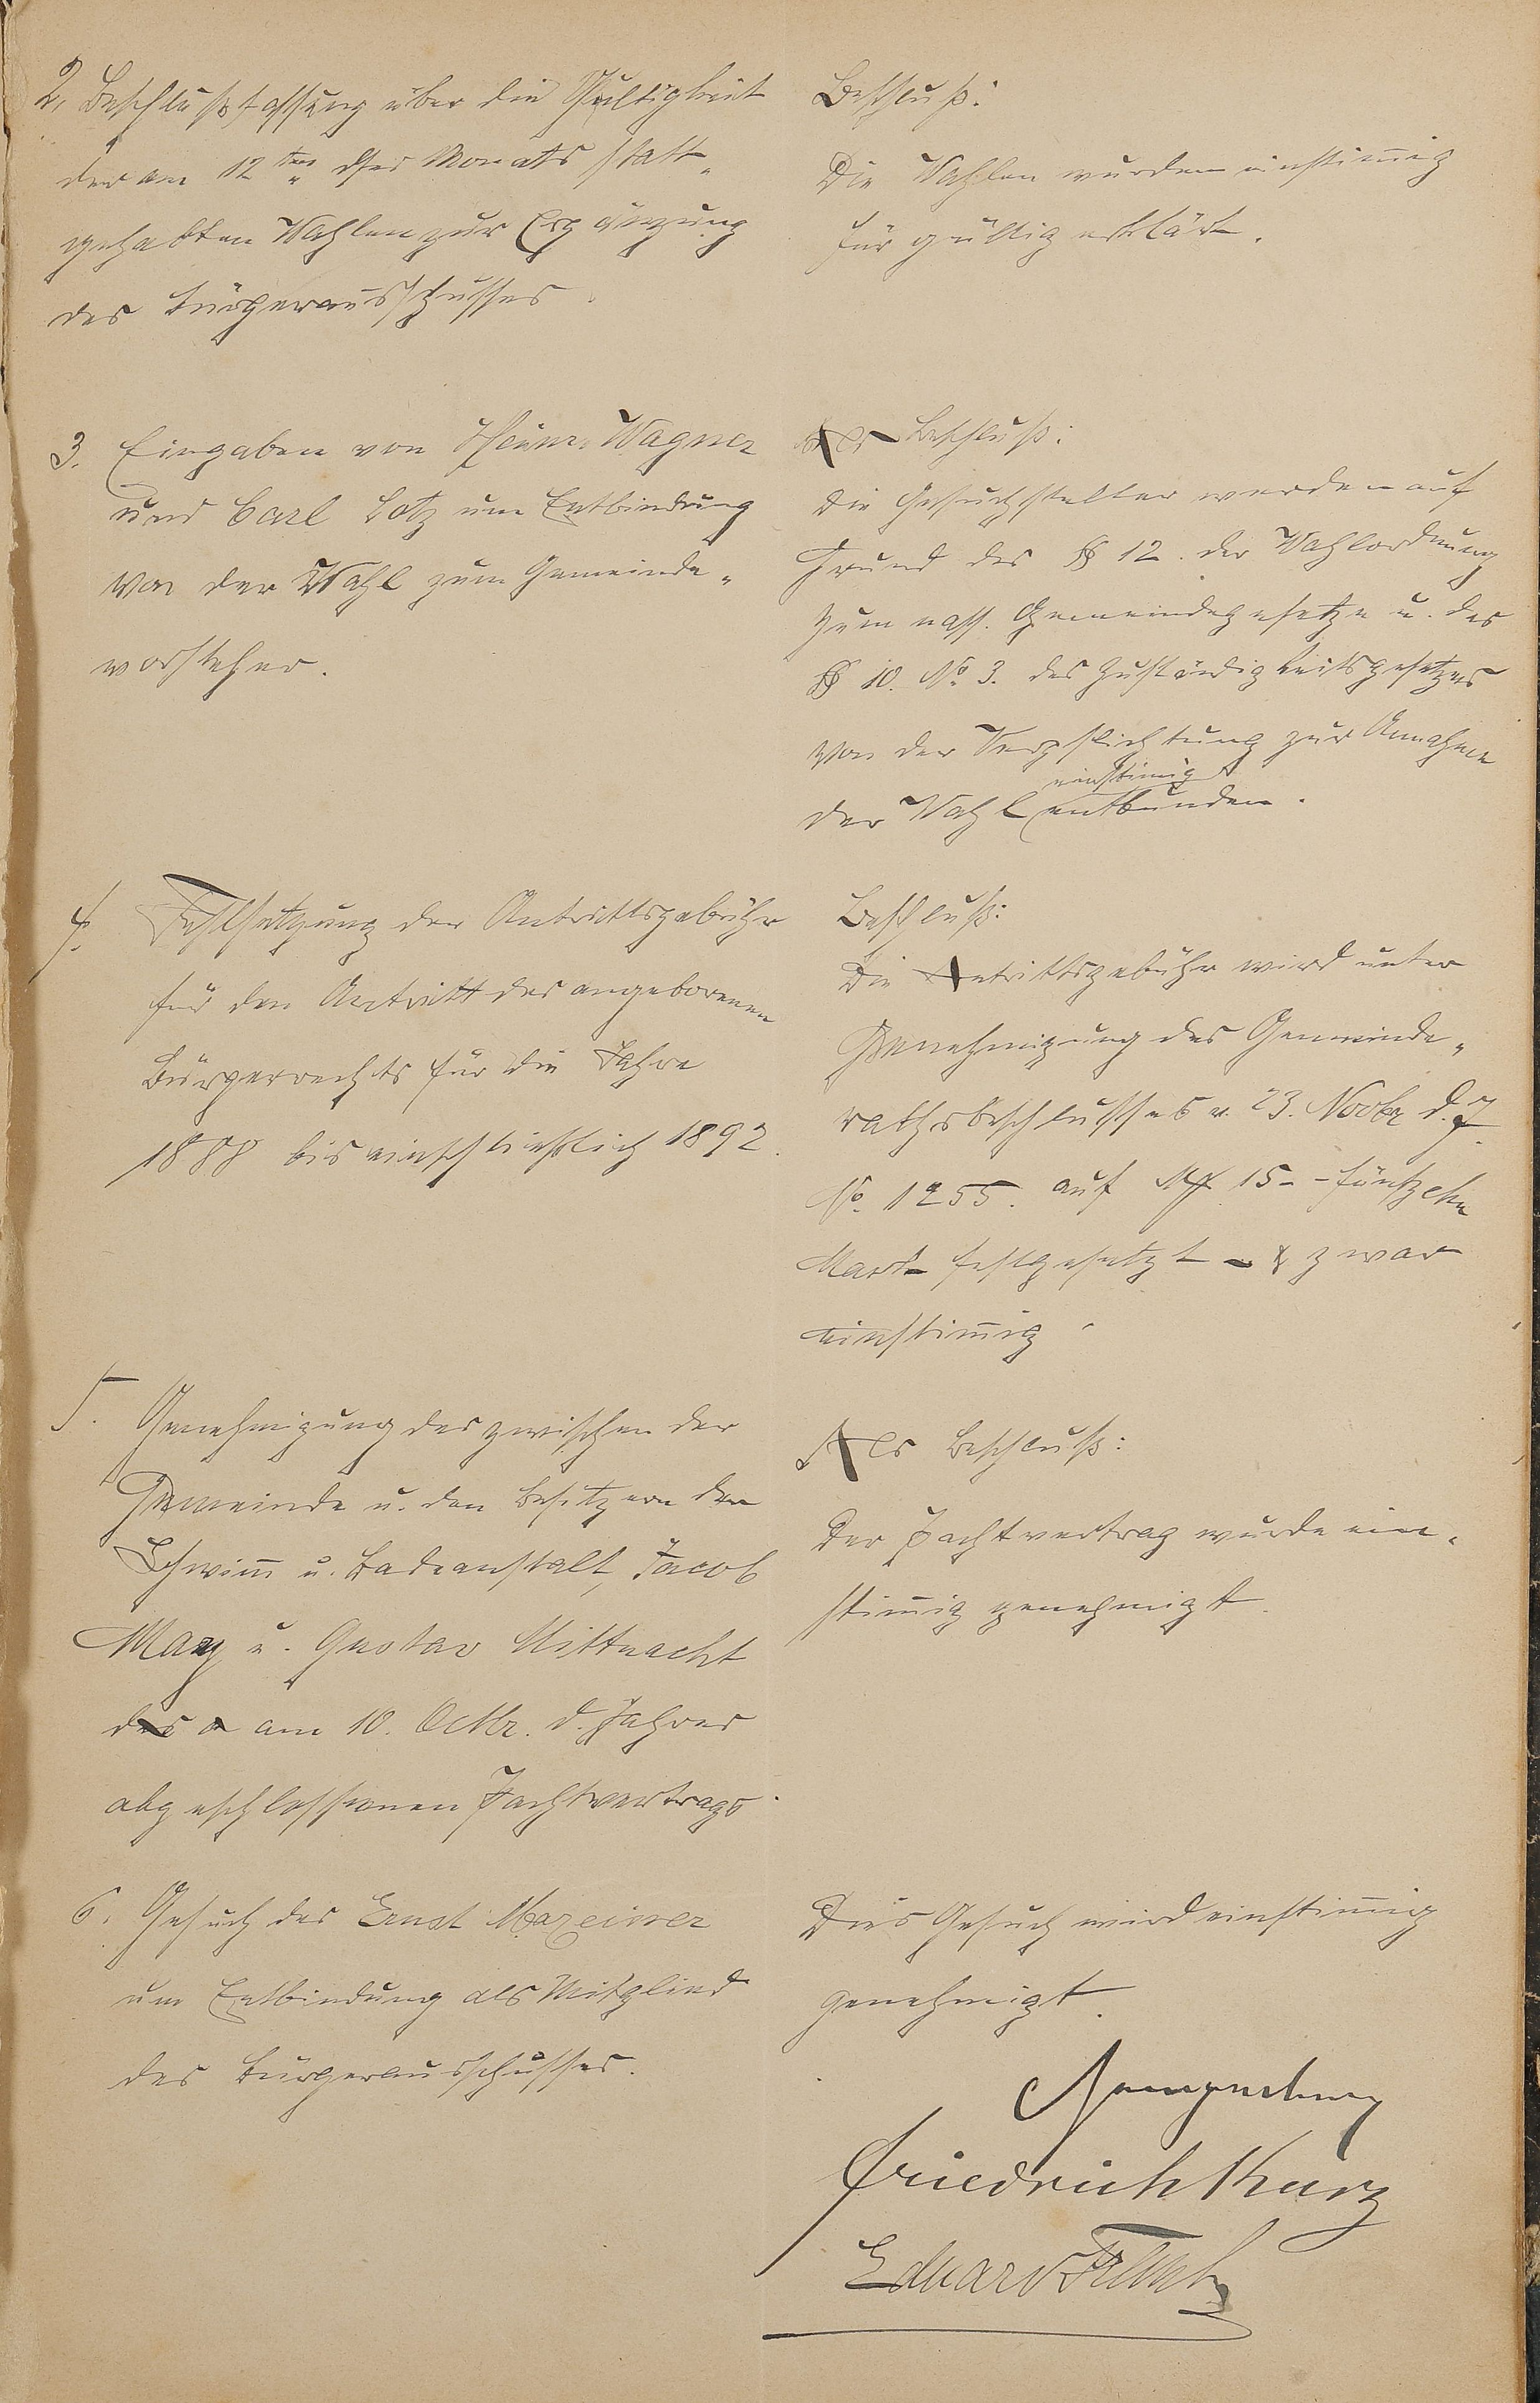 2. Beschlußfassung über die Gültigkeit
der am 12ten dses Monats statt„
gehabten Wahlen zur Ergänzung
des Bürgerausschusses.
Beschluß:
Die Wahlen wurden einstim̄ig
für gültig erklärt.
3. Eingaben von Heinr. Wagner
und Carl Lotz um Entbindung
von der Wahl zum Gemeinde„
vorsteher.
Als Beschluß:
Die Gesuchsteller werden auf
Grund des § 12. der Wahlordnung
zum nass. Gemeindegesetze u. des
§ 10. No. 3. des Zuständigkeitsgesetzes
von der Verpflichtung zur Annahme
einstim̄ig
der Wahl entbunden.
4. Festsetzung der Antrittsgebühr
für den Antritt des angeborenen
Bürgerrechts für die Jahre
1888 bis einschließlich 1892.
Beschluß:
Die Antrittsgebühr wird unter
Genehmigung des Gemeinde„
rathsbeschlusses v. 23. Novbr d. J.
No. 1255. auf M 15 - - fünfzehn
Mark festgesetzt - & zwar
einstim̄ig.
5. Genehmigung des zwischen der
Gemeinde u. den Besitzern der
Schwim̄ u. Badeanstalt, Jacob
May u. Gustav Mittnacht
am 10. Octbr. d. Jahres
abgeschlossenen Pachtvertrags.
Als Beschluß:
Der Pachtvertrag wurde ein„
stim̄ig genehmigt.
6. Gesuch des Ernst Mazeimer
um Entbindung als Mitglied
des Bürgerausschusses.
Dies Gesuch wird einstim̄ig
genehmigt.
Friedrich Kurz
Eduard